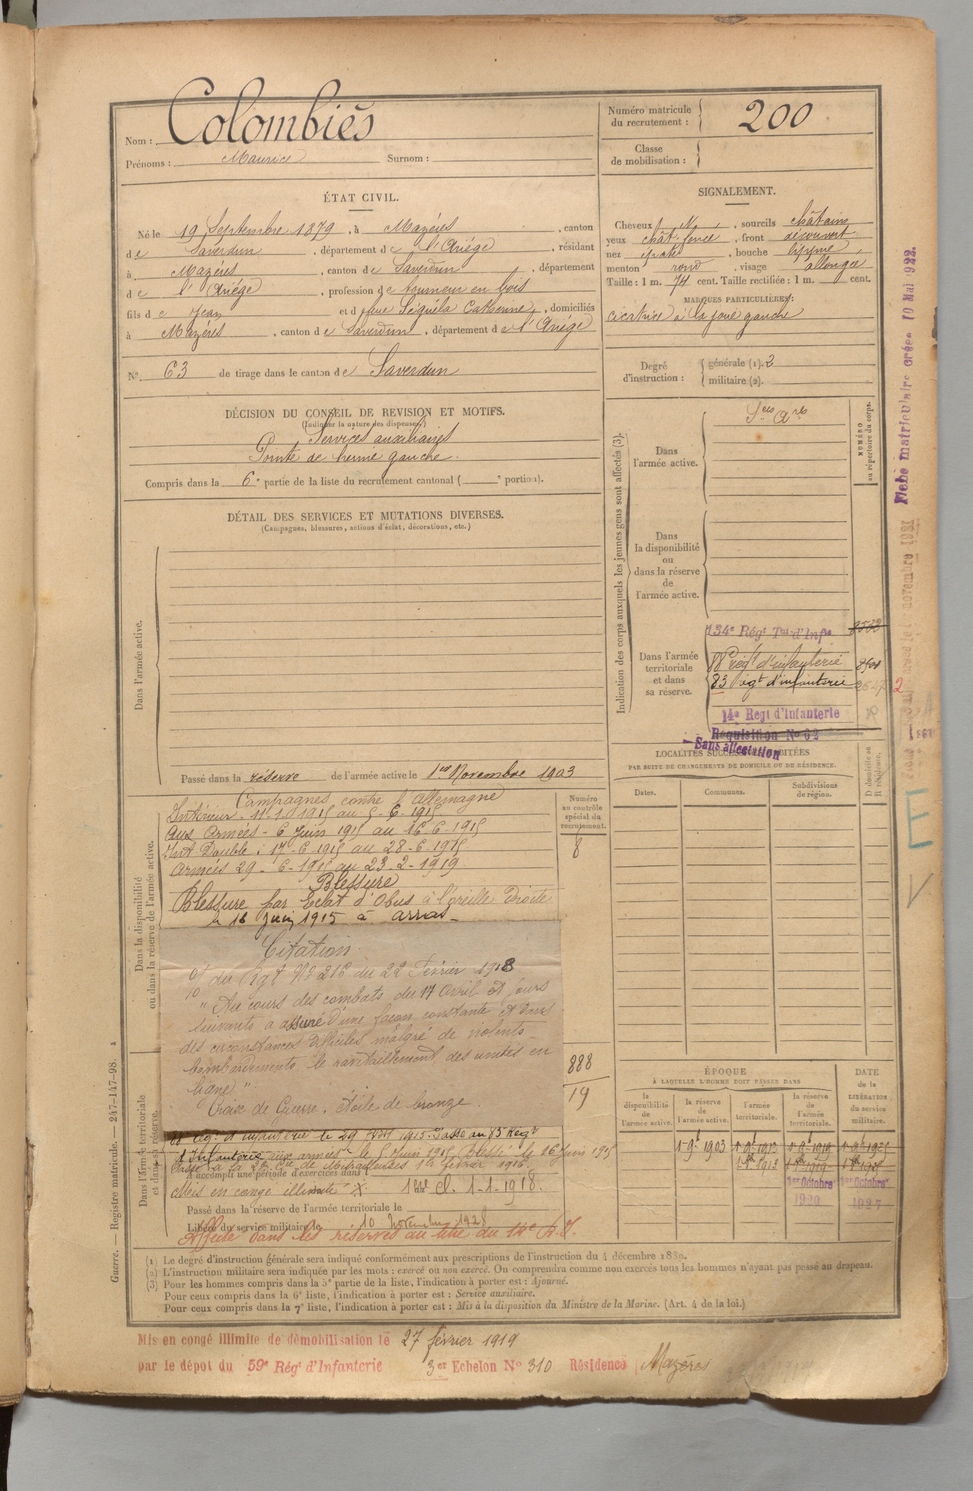 Nom : Colombiès
Prénoms : Maurice Surnom :
Numéro matricule du recrutement : 200
Classe de mobilisation :
ÉTAT CIVIL.
Né le 19 Septembre 1879, à Mazères, canton
d e Saverdun, département d e l'Ariège, résidant
à Mazères, canton d e Saverdun, département
d e l'Ariège, profession d e tourneur en bois
fils d e Jean et d e Séguéla Catherine, domiciliés
à Mazères, canton d e Saverdun, département d e l'Ariège
N° 63 de tirage dans le canton d e Saverdun
SIGNALEMENT.
Cheveux, sourcils châtains
yeux chât. foncé, front découvert
nez, bouche
menton rond, visage allongé
Taille : 1 m. 74 cent. Taille rectifiée : 1 m. cent.
MARQUES PARTICULIÈRES :
cicatrice à la joue gauche
Degré d'instruction : générale (1). 3
militaire (2).
DÉCISION DU CONSEIL DE REVISION ET MOTIFS.
(Indiquer la nature des dispenses.)
Services auxiliaires
Pointe de hernie gauche.
Compris dans la 6e partie de la liste du recrutement cantonal ( e portion).
DÉTAIL DES SERVICES ET MUTATIONS DIVERSES.
(Campagnes, blessures, actions d'éclat, décorations, etc.)
Dans l'armée active.
Passé dans la réserve de l'armée active le 1er Novembre 1903
Indication des corps auxquels les jeunes gens sont affectés (3).
NUMÉRO au répertoire du corps.
Dans l'armée active.
Dans la disponibilité ou dans la réserve de l'armée active.
Dans l'armée territoriale et dans sa réserve.
134e Régt Tal d'Infie
88e régt d'infanterie
83 régt d'infanterie
14e Régt d'Infanterie
Réquisition No 62
Sans affectation
LOCALITÉS SUCCESSIVES HABITÉES
PAR SUITE DE CHANGEMENTS DE DOMICILE OU DE RÉSIDENCE.
Dates. Communes. Subdivisions de région. D domicile ou R résidence.
Fiche matriculaire créée 10 Mai 1922.
Dans la disponibilité ou dans la réserve de l'armée active.
Numéro au contrôle spécial du recrutement.
8
Campagnes contre l'Allemagne
Intérieur. 11.1.1915 au 5-6-1915
aux Armées - 6 Juin 1915 au 16-6-1915
Int. Double : 17-6-1915 au 28-6-1915
Armées 29-6-1915 au 23-2-1919
Blessure
Blessure par Eclat d'Obus à l'oreille Droite
le 16 Juin 1915 à Arras
Citation
O/ du Régt No 218 du 22 Février 1918
"Au cours des combats du 17 Avril et jours
suivants a assuré d'une façon constante et dans
des circonstances difficiles malgré de violents
bombardements le ravitaillement des unités en
ligne".
Croix de Guerre. Étoile de bronze.
888
19
Dans l'armée territoriale et dans sa réserve.
rég. d'infanterie le 29 Avril 1915. Passé au 83 Régt
d'Infanterie aux armées le 5 Juin 1915. Blessé le 16 Juin 1915
Passé à la 2e Cie de Mitrailleuses 1er février 1916.
A accompli une période d'exercices dans
Mis en congé illimité X. cl. 1-1-1918.
Passé dans la réserve de l'armée territoriale le
Libéré du service militaire le 10 novembre 1928
Affecté dans les réserves au titre du 14e R.I.
ÉPOQUE
À LAQUELLE L'HOMME DOIT PASSER DANS
la disponibilité de l'armée active. la réserve de l'armée active. l'armée territoriale. la réserve de l'armée territoriale.
DATE de la LIBÉRATION du service militaire.
1er Octobre 1920
1er Octobre 1927
(1) Le degré d'instruction générale sera indiqué conformément aux prescriptions de l'instruction du 4 décembre 1889.
(2) L'instruction militaire sera indiquée par les mots : exercé ou non exercé. On comprendra comme non exercés tous les hommes n'ayant pas passé au drapeau.
(3) Pour les hommes compris dans la 5e partie de la liste, l'indication à porter est : Ajourné.
Pour ceux compris dans la 6e liste, l'indication à porter est : Service auxiliaire.
Pour ceux compris dans la 7e liste, l'indication à porter est : Mis à la disposition du Ministre de la Marine. (Art. 4 de la loi.)
Guerre. — Registre matricule. — 247-147-98.
Mis en congé illimité de démobilisation le 27 février 1919
par le dépôt du 59e Régt d'Infanterie 3er Echelon No 310 Résidence Mazères